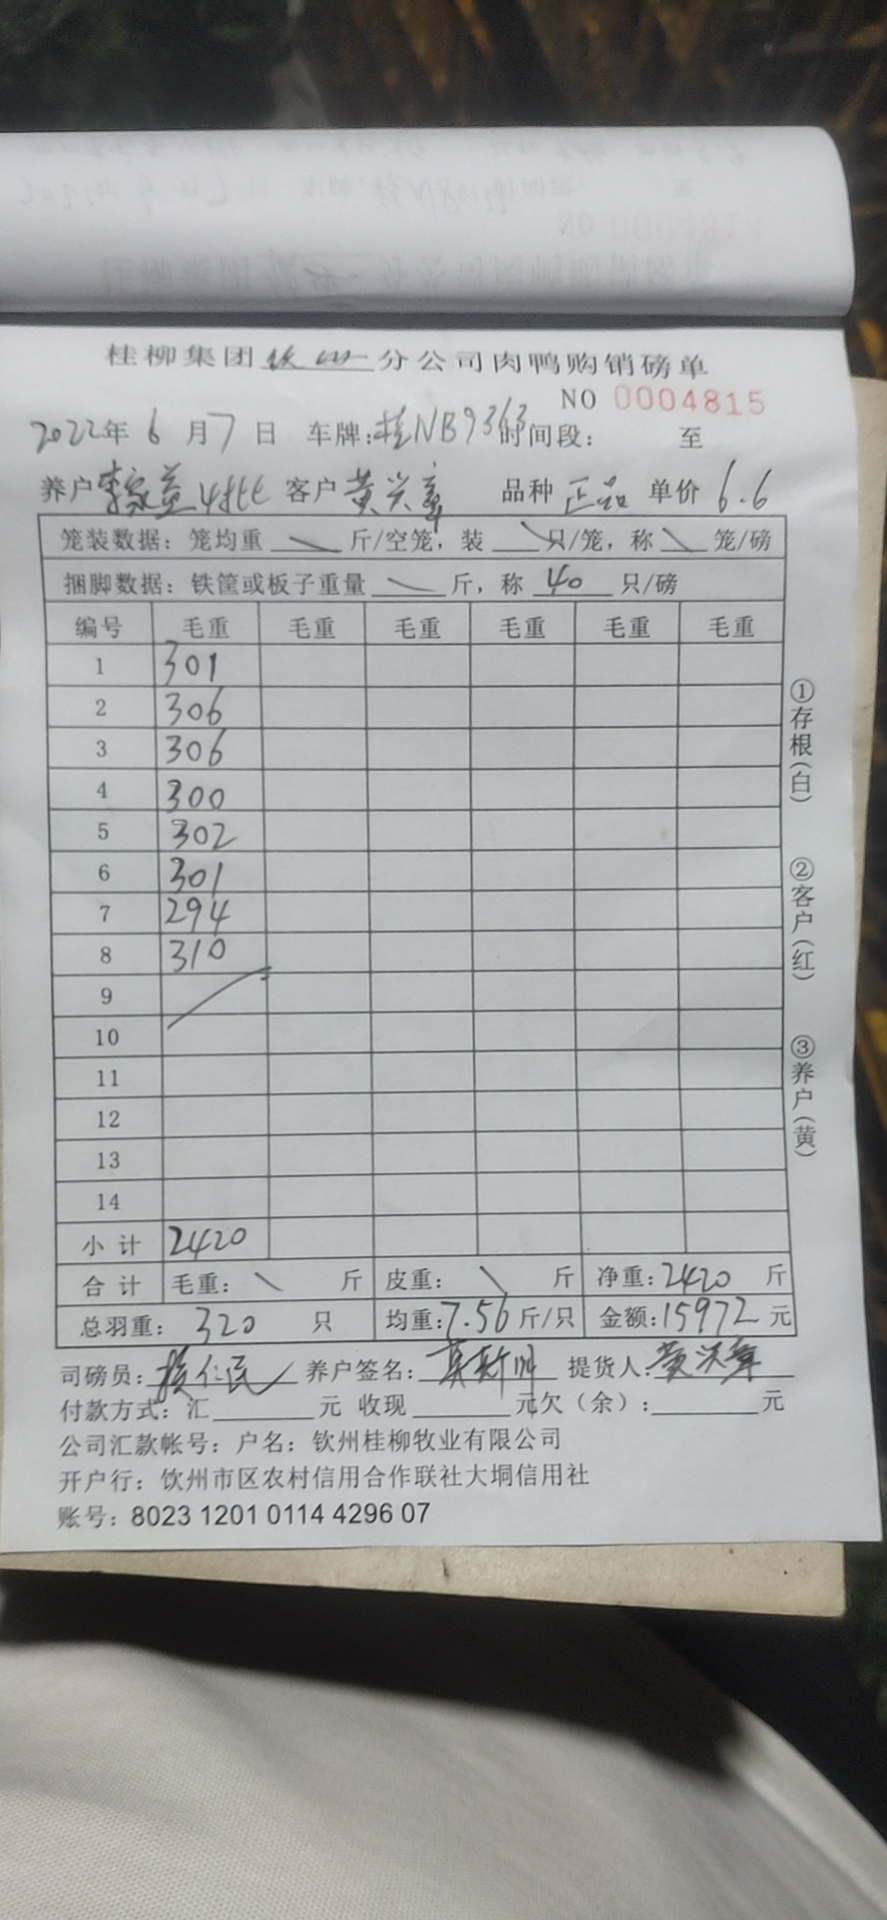 桂柳集团钦州分公司肉鸭购销磅单
NO 0004815
2022年6月7日 车牌:桂NB9363 时间段: 至
养户 李家益4批 客户 黄兴章 品种 正品 单价 6.6
笼装数据:笼均重 \ 斤/空笼,装 \ 只/笼,称 \ 笼/磅
捆脚数据:铁筐或板子重量 \ 斤,称 40 只/磅
编号 毛重 毛重 毛重 毛重 毛重 毛重
1 301
2 306
3 306
4 300
5 302
6 301
7 294
8 310
9
10
11
12
13
14
小计 2420
合计 毛重: \ 斤 皮重: \ 斤 净重:2420 斤
总羽重: 320 只 均重:7.56斤/只 金额:15972元
司磅员: 养户签名: 提货人:黄兴章
付款方式:汇 元 收现 元欠(余): 元
公司汇款帐号:户名:钦州桂柳牧业有限公司
开户行:饮州市区农村信用合作联社大垌信用社
账号:8023 1201 0114 4296 07
①存根(白)
②客户(红)
③养户(黄)